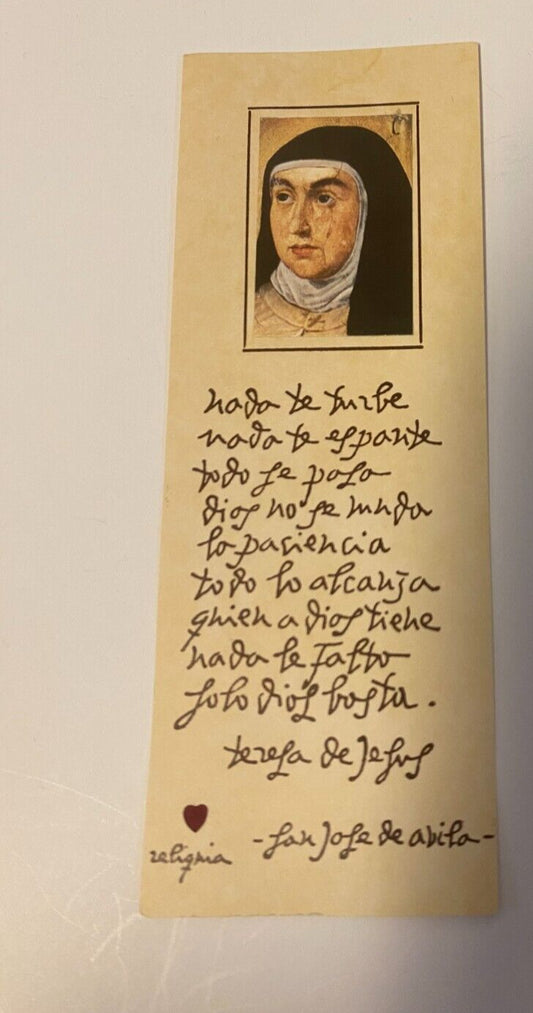 nada te turbe
nada te espante
todo se pasa
dios no se muda
la paciencia
todo lo alcanza
quien a dios tiene
nada le falta
solo dios basta.
teresa de Jesus
reliquia
-san Jose de avila-